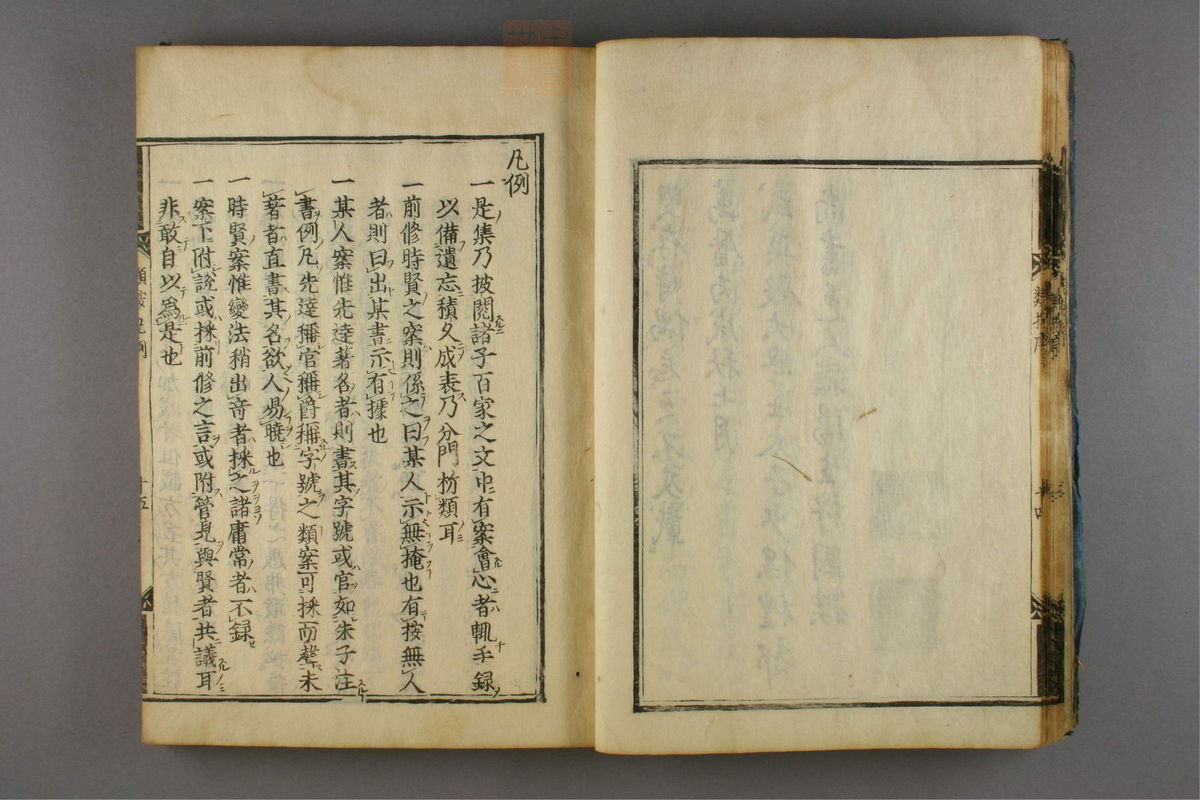 凡例
一是集乃披閱諸子百家之文中有案會心者輒手錄
以備遺忘積久成表乃分門析類耳
一前修時賢之案則係之曰某人示無掩也有按無人
者則曰出某書示有據也
一某人案惟先達著名者則書其字號或官如朱子注
書例凡先達稱官稱爵稱字號之類案可採而聲未
著者直書其名欲人易曉也
一時賢案惟變法稍出奇者採之諸庸常者不錄
一案下附說或採前修之言或附管見與賢者共議耳
非敢自以為是也
十五